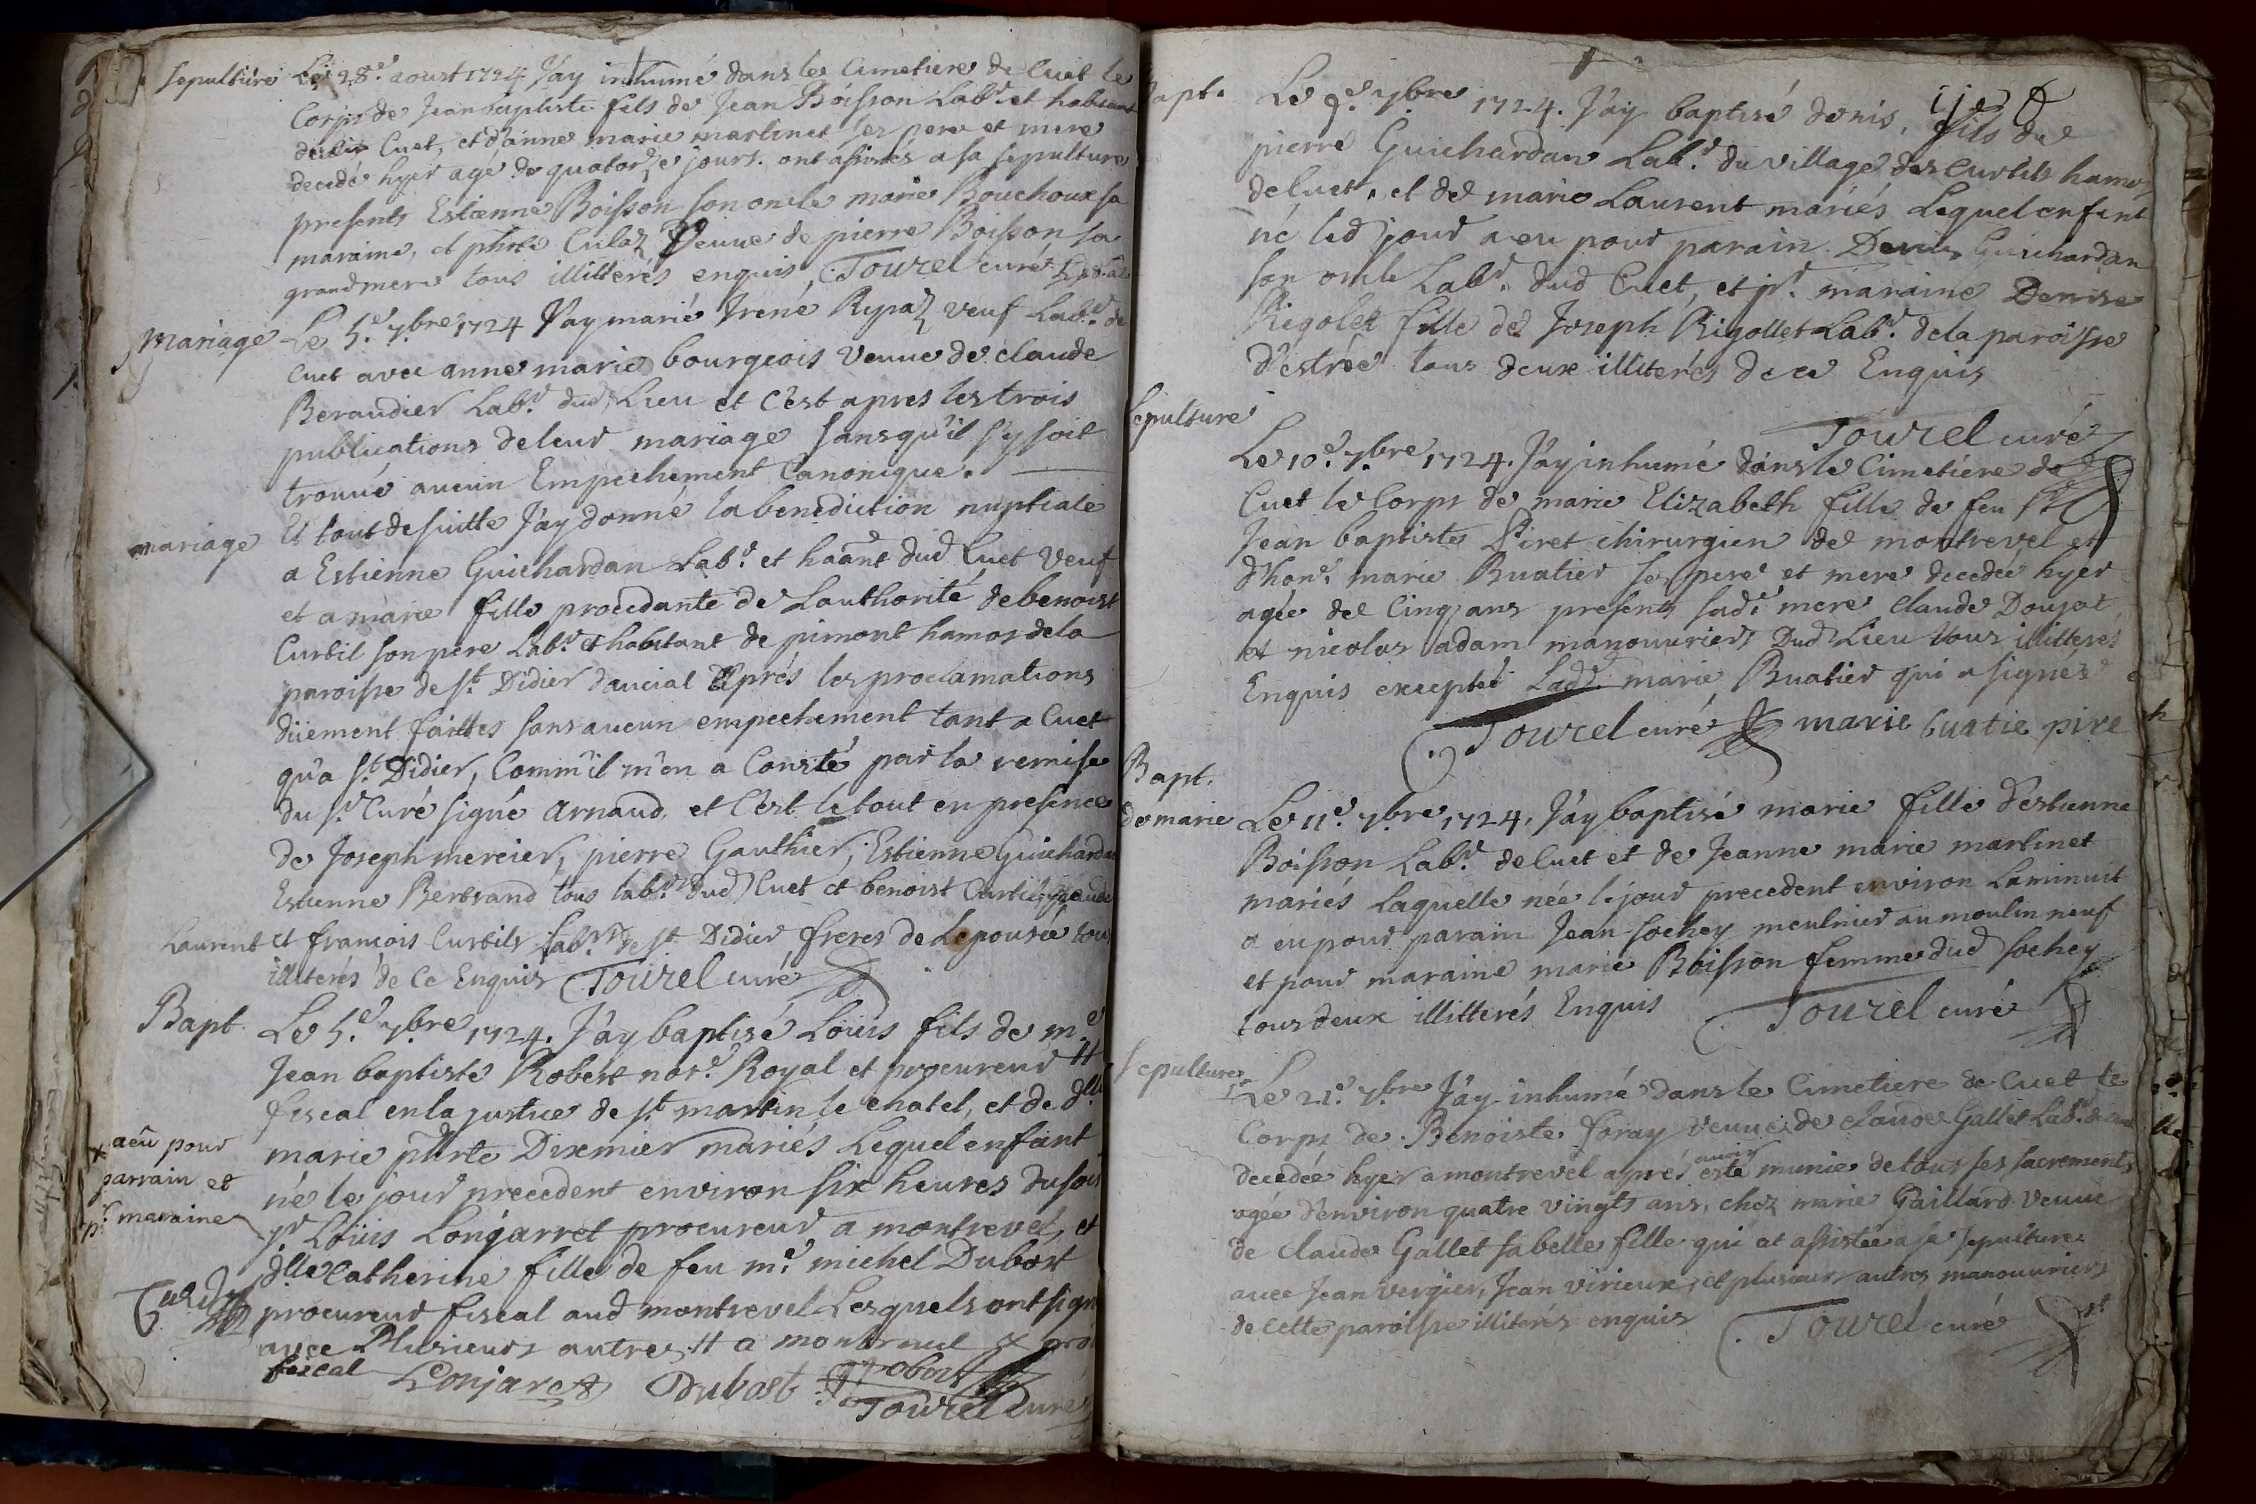 sepulture Le 28e aoust 1724 J'ay inhumé dans le Cimetiere de Cuet le
Corps de Jean baptiste fils de Jean Boisson Labr. et habitant
dudit Cuet, et d'anne marie martinet ses pere et mere
decedé hyer agé de quatorze jours. ont assistés a sa sepulture
presents Estienne Boisson son oncle marie Bouchoux sa
maraine, et phte Culaz Veuue de pierre Boisson sa
grandmere tous illitterés enquis, Tourel curé
Mariage Le 5.e 7.bre 1724 J'ay marié Irené Rypaz veuf Labr. de
Cuet avec anne marie bourgeois Veuue de claude
Beraudier Labr. dud. Lieu et C'est apres les trois
publications de leur mariage sans qu'il s'y soit
trouué aucun Empechement Canonique.
mariage Et tout de suitte J'ay donné la benediction nuptiale
a Estienne Guichardan Labr. et haânt dud Cuet Veuf
et a marie fille procedante de Lauthorité de benoist
Curtil son pere Labr. et habitant de pimont hamos de la
paroisse de st. Didier daucial Aprés les proclamations
düement faittes sans aucun empechement tant a Cuet
qu'a st. Didier, Comm'il m'en a Consté par la remise
du sr. Curé signé Arnaud, et C'est le tout en presence
de Joseph mercier, pierre Gauthier, Estienne Guichardan
Estienne Bertrand tous labrs. dud Cuet et benoist Curtil, claude
Laurent et francois Curtils Labrs. de st Didier freres de Lepousée tous
illiterés de Ce Enquis Tourel curé
Bapt. Le 5.e 7.bre 1724. J'ay baptisé Loüis fils de me
Jean baptiste Robert notre. Royal et procureur #
fiscal en la justice de st martin le chatel, et de dlle
marie phrte Diximier mariés Lequel enfant
né le jour precedent environ six heures du soir
x a eû pour
parrain et
pr. maraine
sr Loüis Lonjarret procureur a montrevel, et
dlle Catherine fille de feu me. michel Dubost
procureur fiscal aud montrevel Lesquels ont signé
avec Plusieurs autres # a montrevel &
fiscal Lonjaret Dubost Robert
Tourel Curé
Bapt. Le 9.e 7bre 1724. J'ay baptisé denis, fils de
pierre Guichardan Labr. du village des Curtils hamos
de Cuet, et de marie Laurent mariés Lequel enfant
né led jour a eu pour parain Denis Guichardan
son oncle Labr. dud Cuet, et pr. maraine Denise
Rigolet fille de Joseph Rigollet Labr. de la paroisse
d'estrée tous deux illiterés de ce Enquis
Tourel curé
Sepulture
Le 10.e 7.bre 1724. J'ay inhumé dans le Cimetiere de
Cuet le Corps de marie Elizabeth fille de feu sr
Jean baptiste Piret chirurgien de montrevel et
d'hone. marie Buatier ses pere et mere decedée hyer
agée de Cinq ans presents sade. mere Claude Doujat
et nicolas adam manouuriers Dud Lieu tous illitterés
Enquis excepté Lade. marie Buatier qui a signée
Tourel curé marie buatie pire
Bapt.
de marie Le 11.e 7.bre 1724, J'ay baptisé marie fille d'estienne
Boisson Labr. de Cuet et de Jeanne marie martinet
mariés Laquelle née le jour precedent environ La minuit
a eu pour parain Jean sochey meulnier au moulin neuf
et pour maraine marie Boisson femme dud Sochey
tous deux illitterés Enquis Tourel curé
Sepulture
Le 21.e 7.bre J'ay inhumé dans le Cimetiere de Cuet le
Corps de Benoiste foray veuue de claude Gallet Labr. de Cuet
decedée hyer a montrevel aprés avoir esté munie de tous ses sacrements
agée d'environ quatre vingts ans, chez marie Gaillard veuue
de Claude Gallet sa belle fille qui at assistée a sa sepulture
avec Jean vergier, Jean virieux, et plusieurs autres manouuriers
de Cette paroisse illiterés enquis Tourel curé